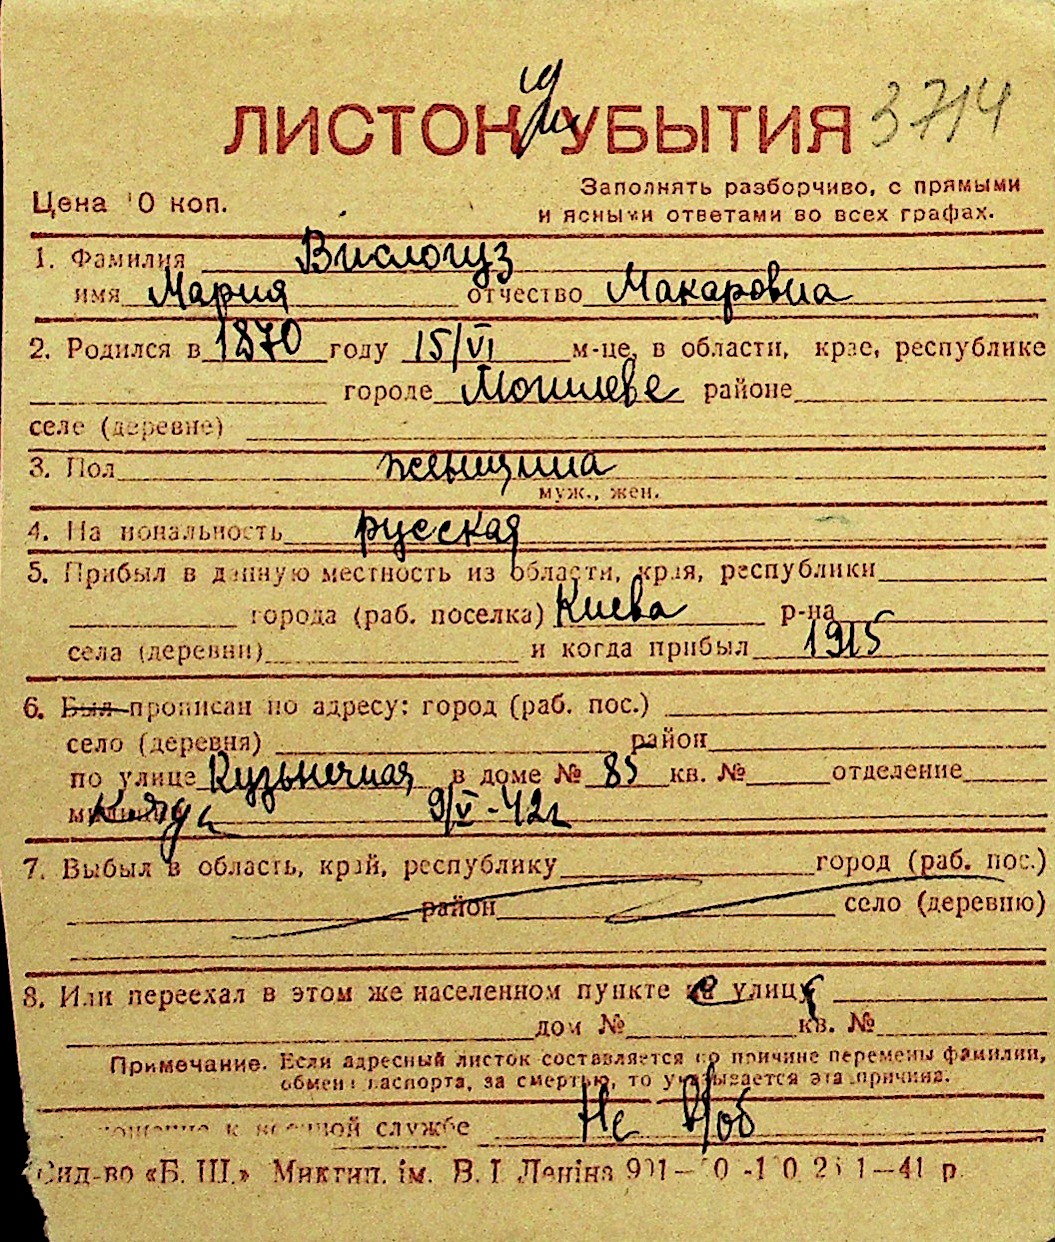 ЛИСТОК УБЫТИЯ 3714
Цена 10 коп.
Заполнять разборчиво, с прямыми
и ясными ответами во всех графах.
1. Фамилия Вислогуз
имя Мария отчество Макаровна
2. Родился в 1870 году 15/VI м-це, в области, крае, республике
городе Могилеве районе
селе (деревне)
3. Пол женщина
муж., жен.
4. Национальность русская
5. Прибыл в данную местность из области, края, республики
города (раб. поселка) Киева р-на
села (деревни) и когда прибыл 1915
6. Был прописан по адресу: город (раб. пос.)
село (деревня) район
по улице Кузнечная в доме № 85 кв. № отделение
милиции 9/V-42г
7. Выбыл в область, край, республику город (раб. пос.)
район село (деревню)
8. Или переехал в этом же населенном пункте улицу
дом № кв. №
Примечание. Если адресный листок составляется по причине перемены фамилии,
обмена паспорта, за смертью, то указывается эта причина.
к военной службе Не
Вид-во «Б. Ш.» Миктип. ім. В. І. Леніна 1—41 р.